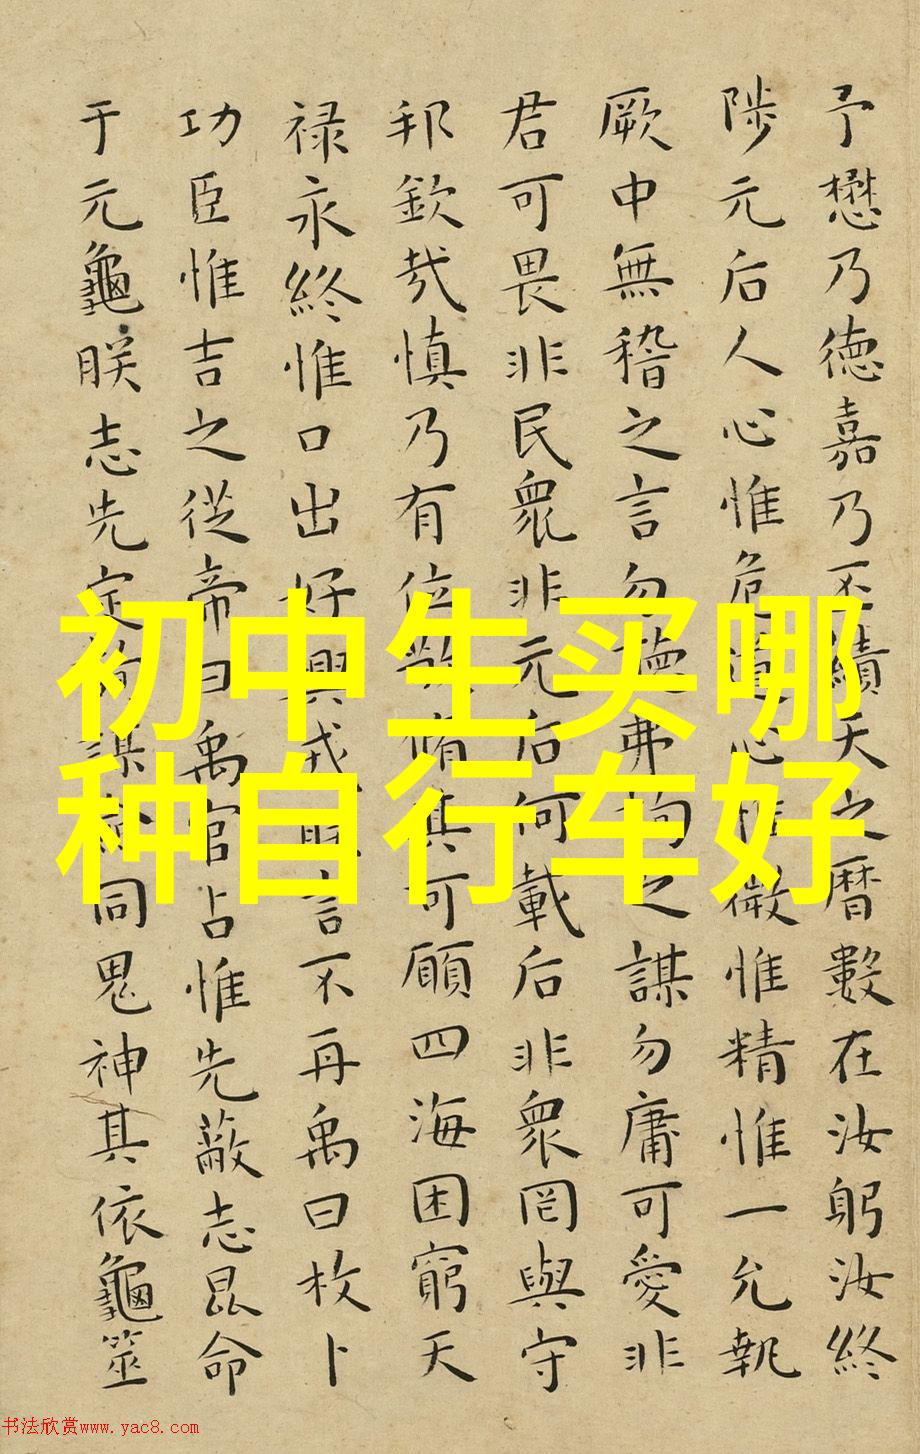 初中生买哪
种自行车好
予懋乃德嘉乃丕績天之暦數在汝躬汝終
陟元后人心惟危道心惟微惟精惟一允執
厥中無稽之言勿聽弗詢之謀勿庸可愛非
君可畏非民衆非元后何載后非衆罔與守
邦欽哉慎乃有位敬脩其可願四海困窮天
禄永終惟口出好興戎朕言不再禹曰枚卜
功臣惟吉之從帝曰禹官占惟先蔽志昆命
于元龜朕志先定詢謀僉同鬼神其依龜筮
书法欣赏www.yac8.com